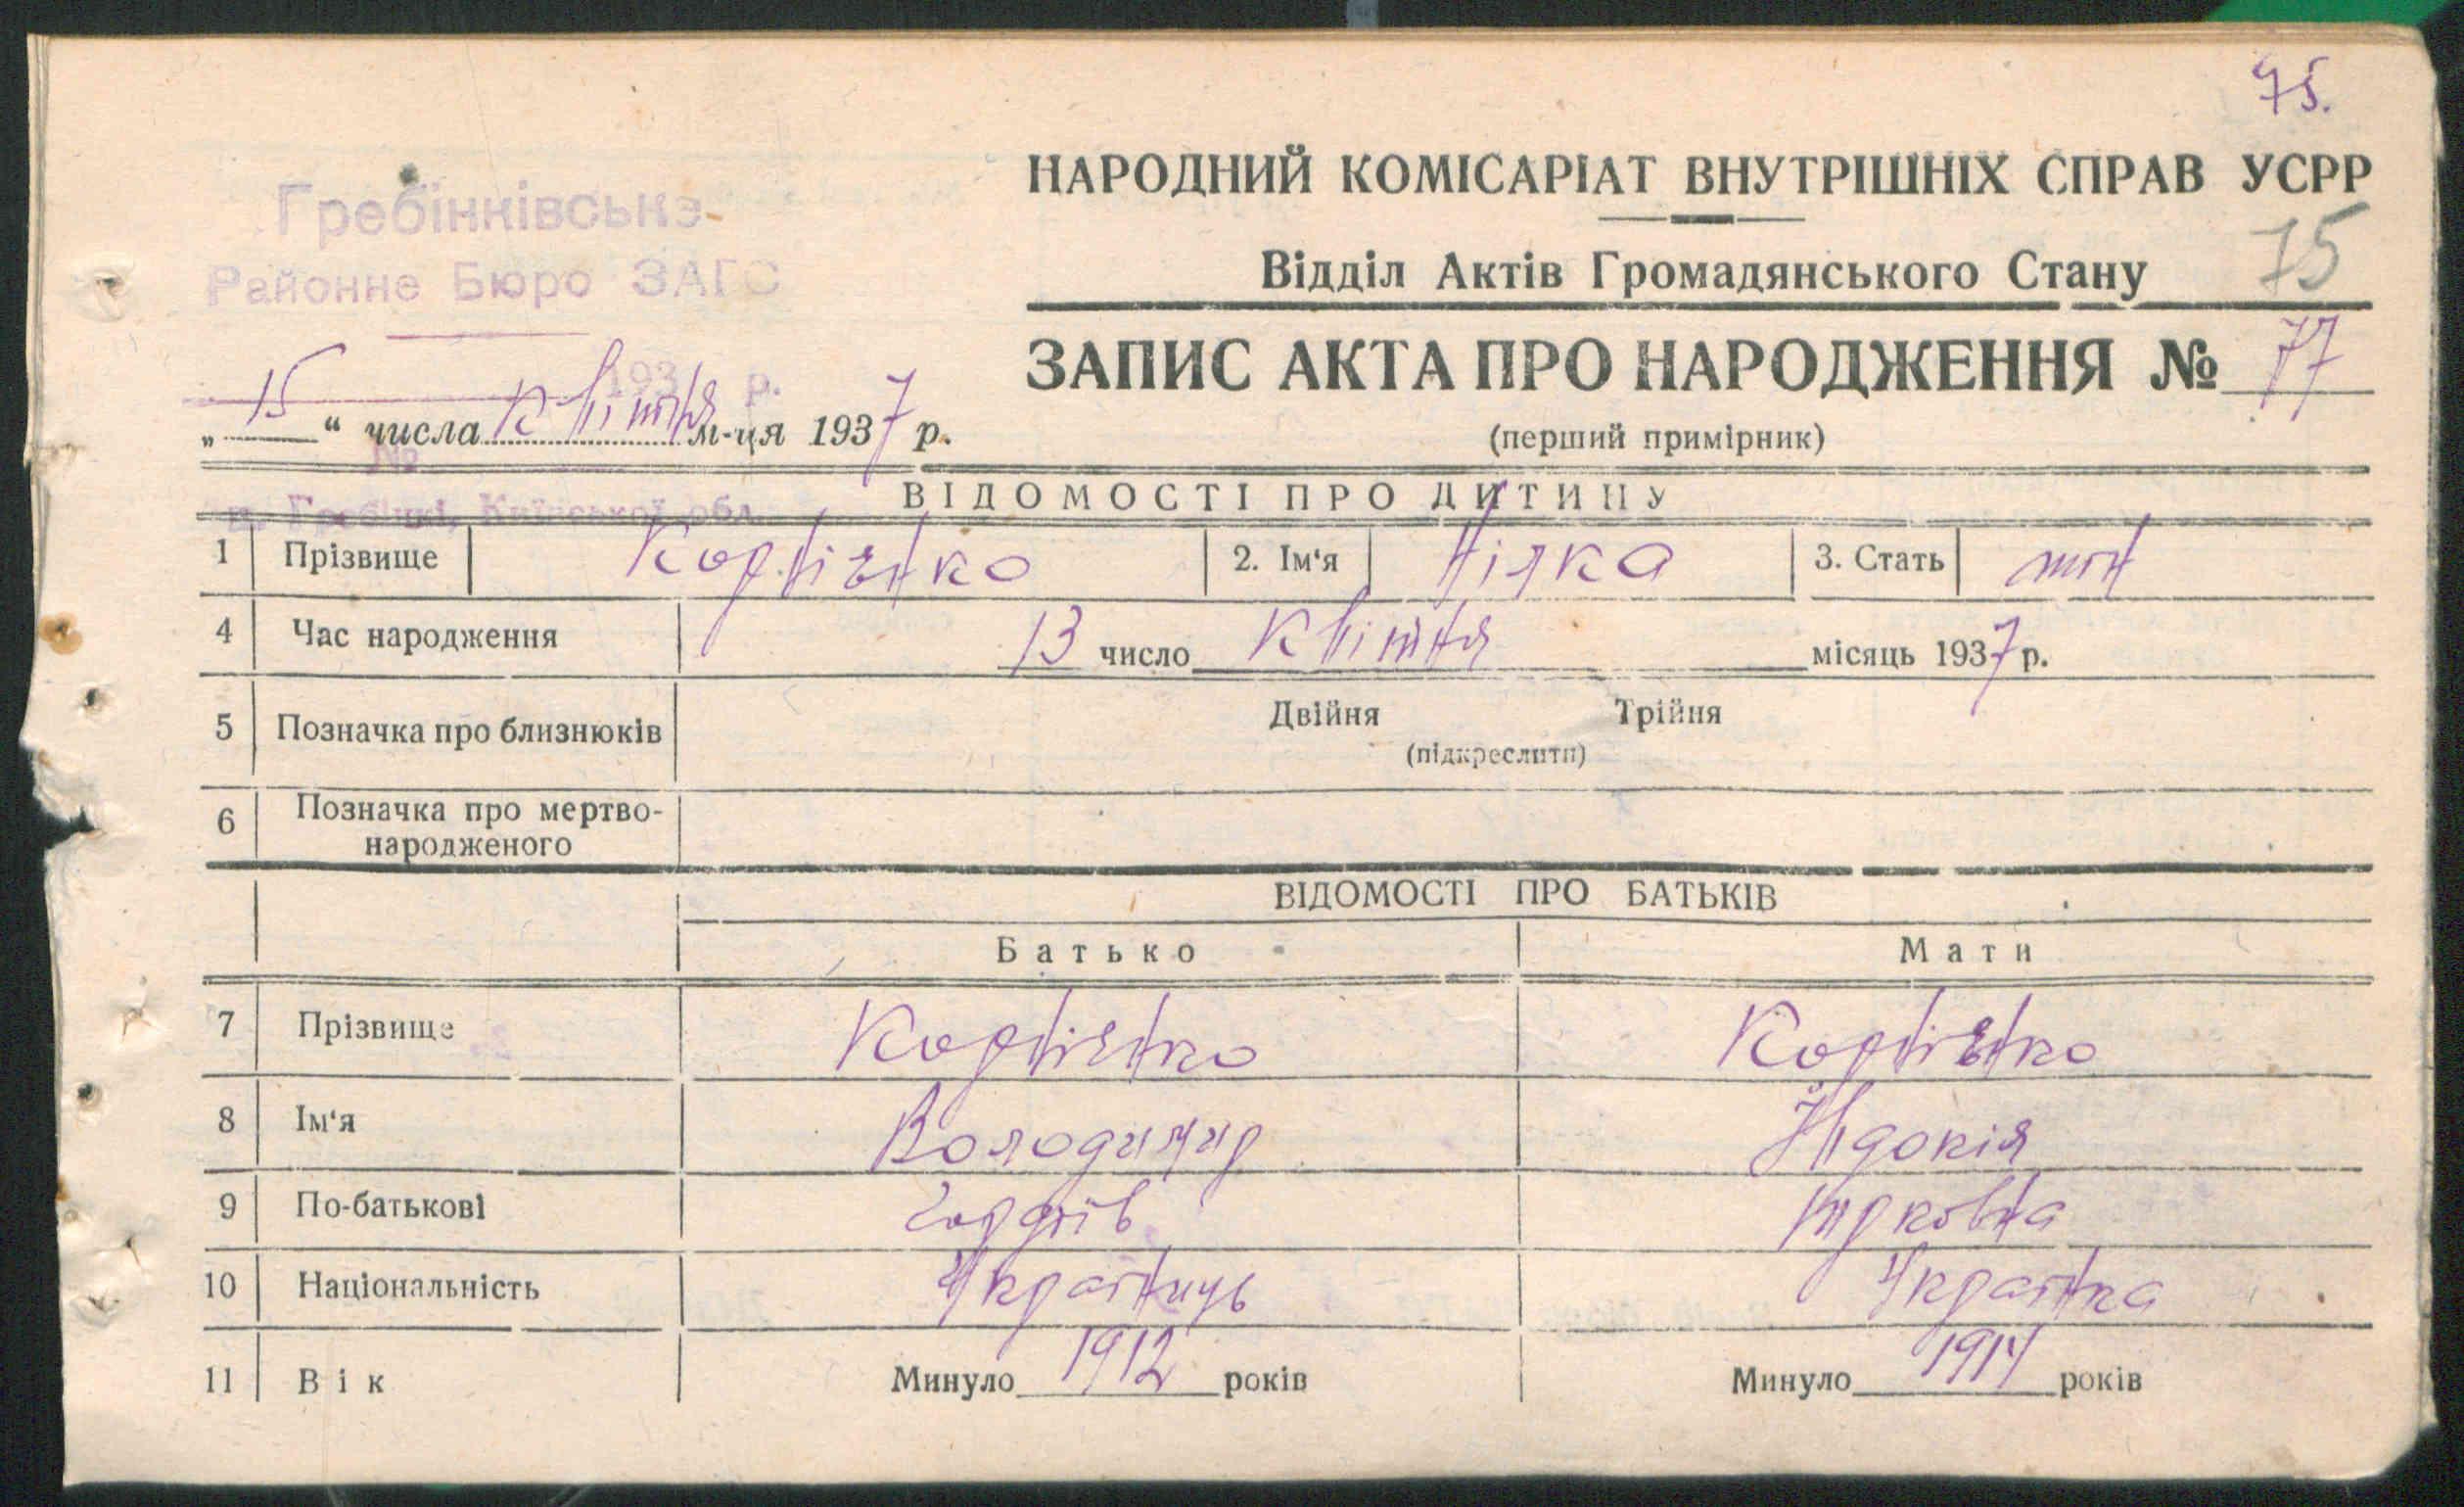 75.
НАРОДНИЙ КОМІСАРІАТ ВНУТРІШНІХ СПРАВ УСРР
Гребінківське
Районне Бюро ЗАГС
Відділ Актів Громадянського Стану 75
ЗАПИС АКТА ПРО НАРОДЖЕННЯ № 77
193 р.
„15“ числа квітня м-ця 1937 р.
(перший примірник)
№
Гребінкі, Київської обл.
ВІДОМОСТІ ПРО ДИТИНУ
1 Прізвище Корнієнко 2. Ім‘я 3. Стать
4 Час народження 13 число квітня місяць 1937 р.
5 Позначка про близнюків Двійня Трійня
(підкреслити)
6 Позначка про мертво-
народженого
ВІДОМОСТІ ПРО БАТЬКІВ
Батько Мати
7 Прізвище Корнієнко Корнієнко
8 Ім‘я Володимир Явдокія
9 По-батькові Гордіїв
10 Національність Українець Українка
11 Вік Минуло 1912 років Минуло 1914 років